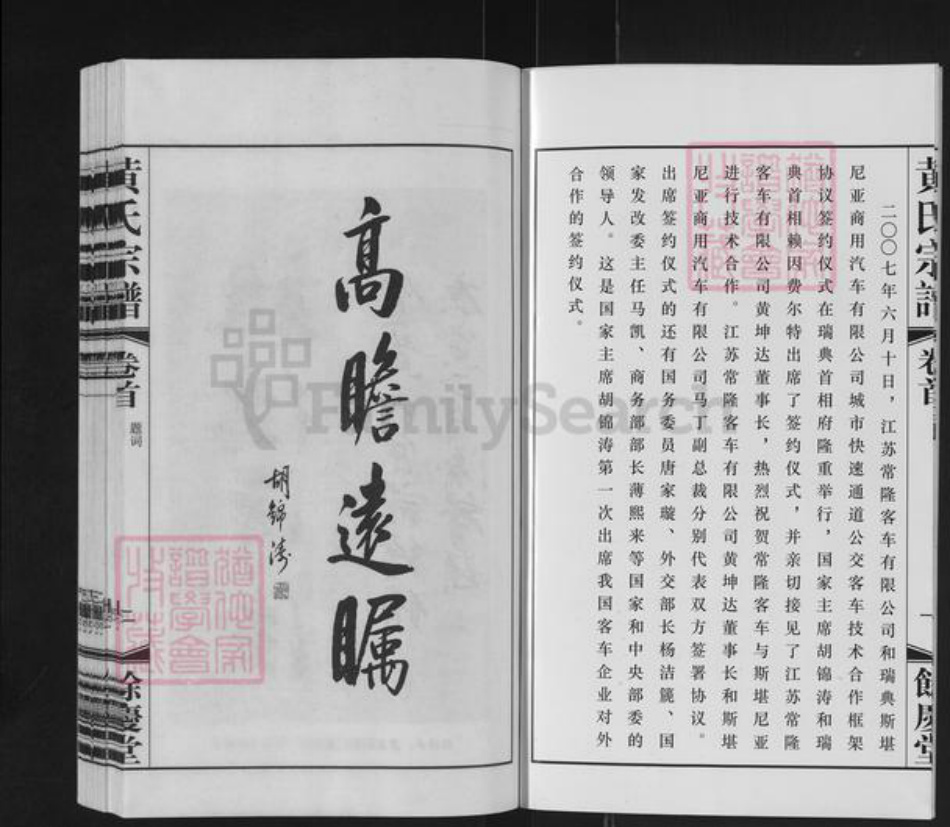 黄氏宗譜
卷首
餘慶堂
二〇〇七年六月十日，江苏常隆客车有限公司和瑞典斯堪
尼亚商用汽车有限公司城市快速通道公交客车技术合作框架
协议签约仪式在瑞典首相府隆重举行，国家主席胡锦涛和瑞
典首相赖因费尔特出席了签约仪式，并亲切接见了江苏常隆
客车有限公司黄坤达董事长，热烈祝贺常隆客车与斯堪尼亚
进行技术合作。江苏常隆客车有限公司黄坤达董事长和斯堪
尼亚商用汽车有限公司马丁副总裁分别代表双方签署协议。
出席签约仪式的还有国务委员唐家璇、外交部长杨洁篪、国
家发改委主任马凯、商务部部长薄熙来等国家和中央部委的
领导人。这是国家主席胡锦涛第一次出席我国客车企业对外
合作的签约仪式。
高瞻遠瞩
胡锦涛
黄氏宗譜
卷首
题词
餘慶堂
FamilySearch